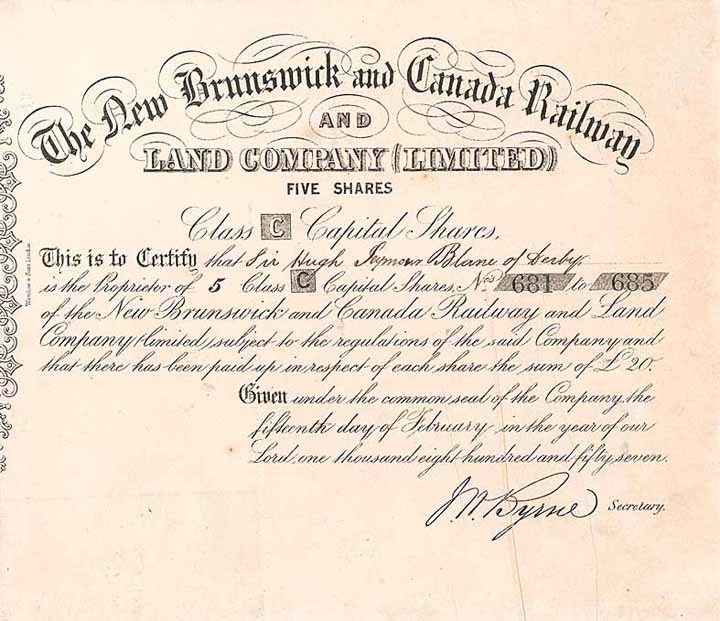 The New Brunswick and Canada Railway
AND
LAND COMPANY (LIMITED)
FIVE SHARES
Class C Capital Shares.
This is to Certify that Sir Hugh Seymour Blane of Derby
is the Proprietor of 5 Class C Capital Shares, Nos. 681 to 685
of the New Brunswick and Canada Railway and Land
Company limited, subject to the regulations of the said Company and
that there has been paid up in respect of each share the sum of £20.
Given under the common seal of the Company, the
fifteenth day of February in the year of our
Lord, one thousand eight hundred and fifty seven.
J W. Byrne Secretary.